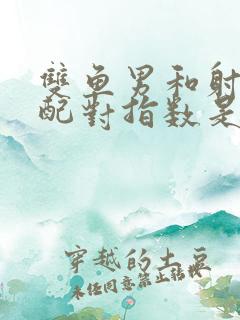 雙魚男和射
配對指数是
穿越的土豆
未经同意禁止转载